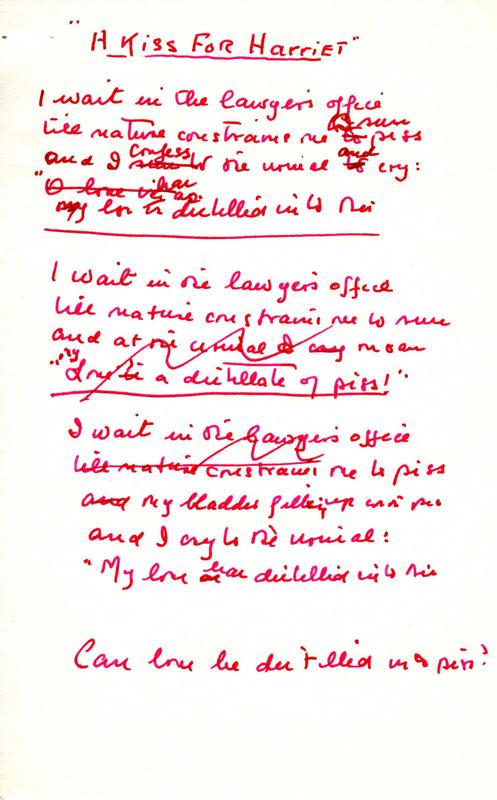 "A Kiss For Harriet"
I wait in the lawyer's office
till nature constrains me to piss
and I confess to the urinal and cry:
my love has distilled into this
I wait in the lawyer's office
till nature constrains me to
and at the urinal I cry moan
"my Love is a distillate of piss!"
I wait in the lawyer's office
till nature constrains me to piss
and my bladder filling up with
and I cry to the urinal:
"My love has distilled into this
Can love be distilled into piss?